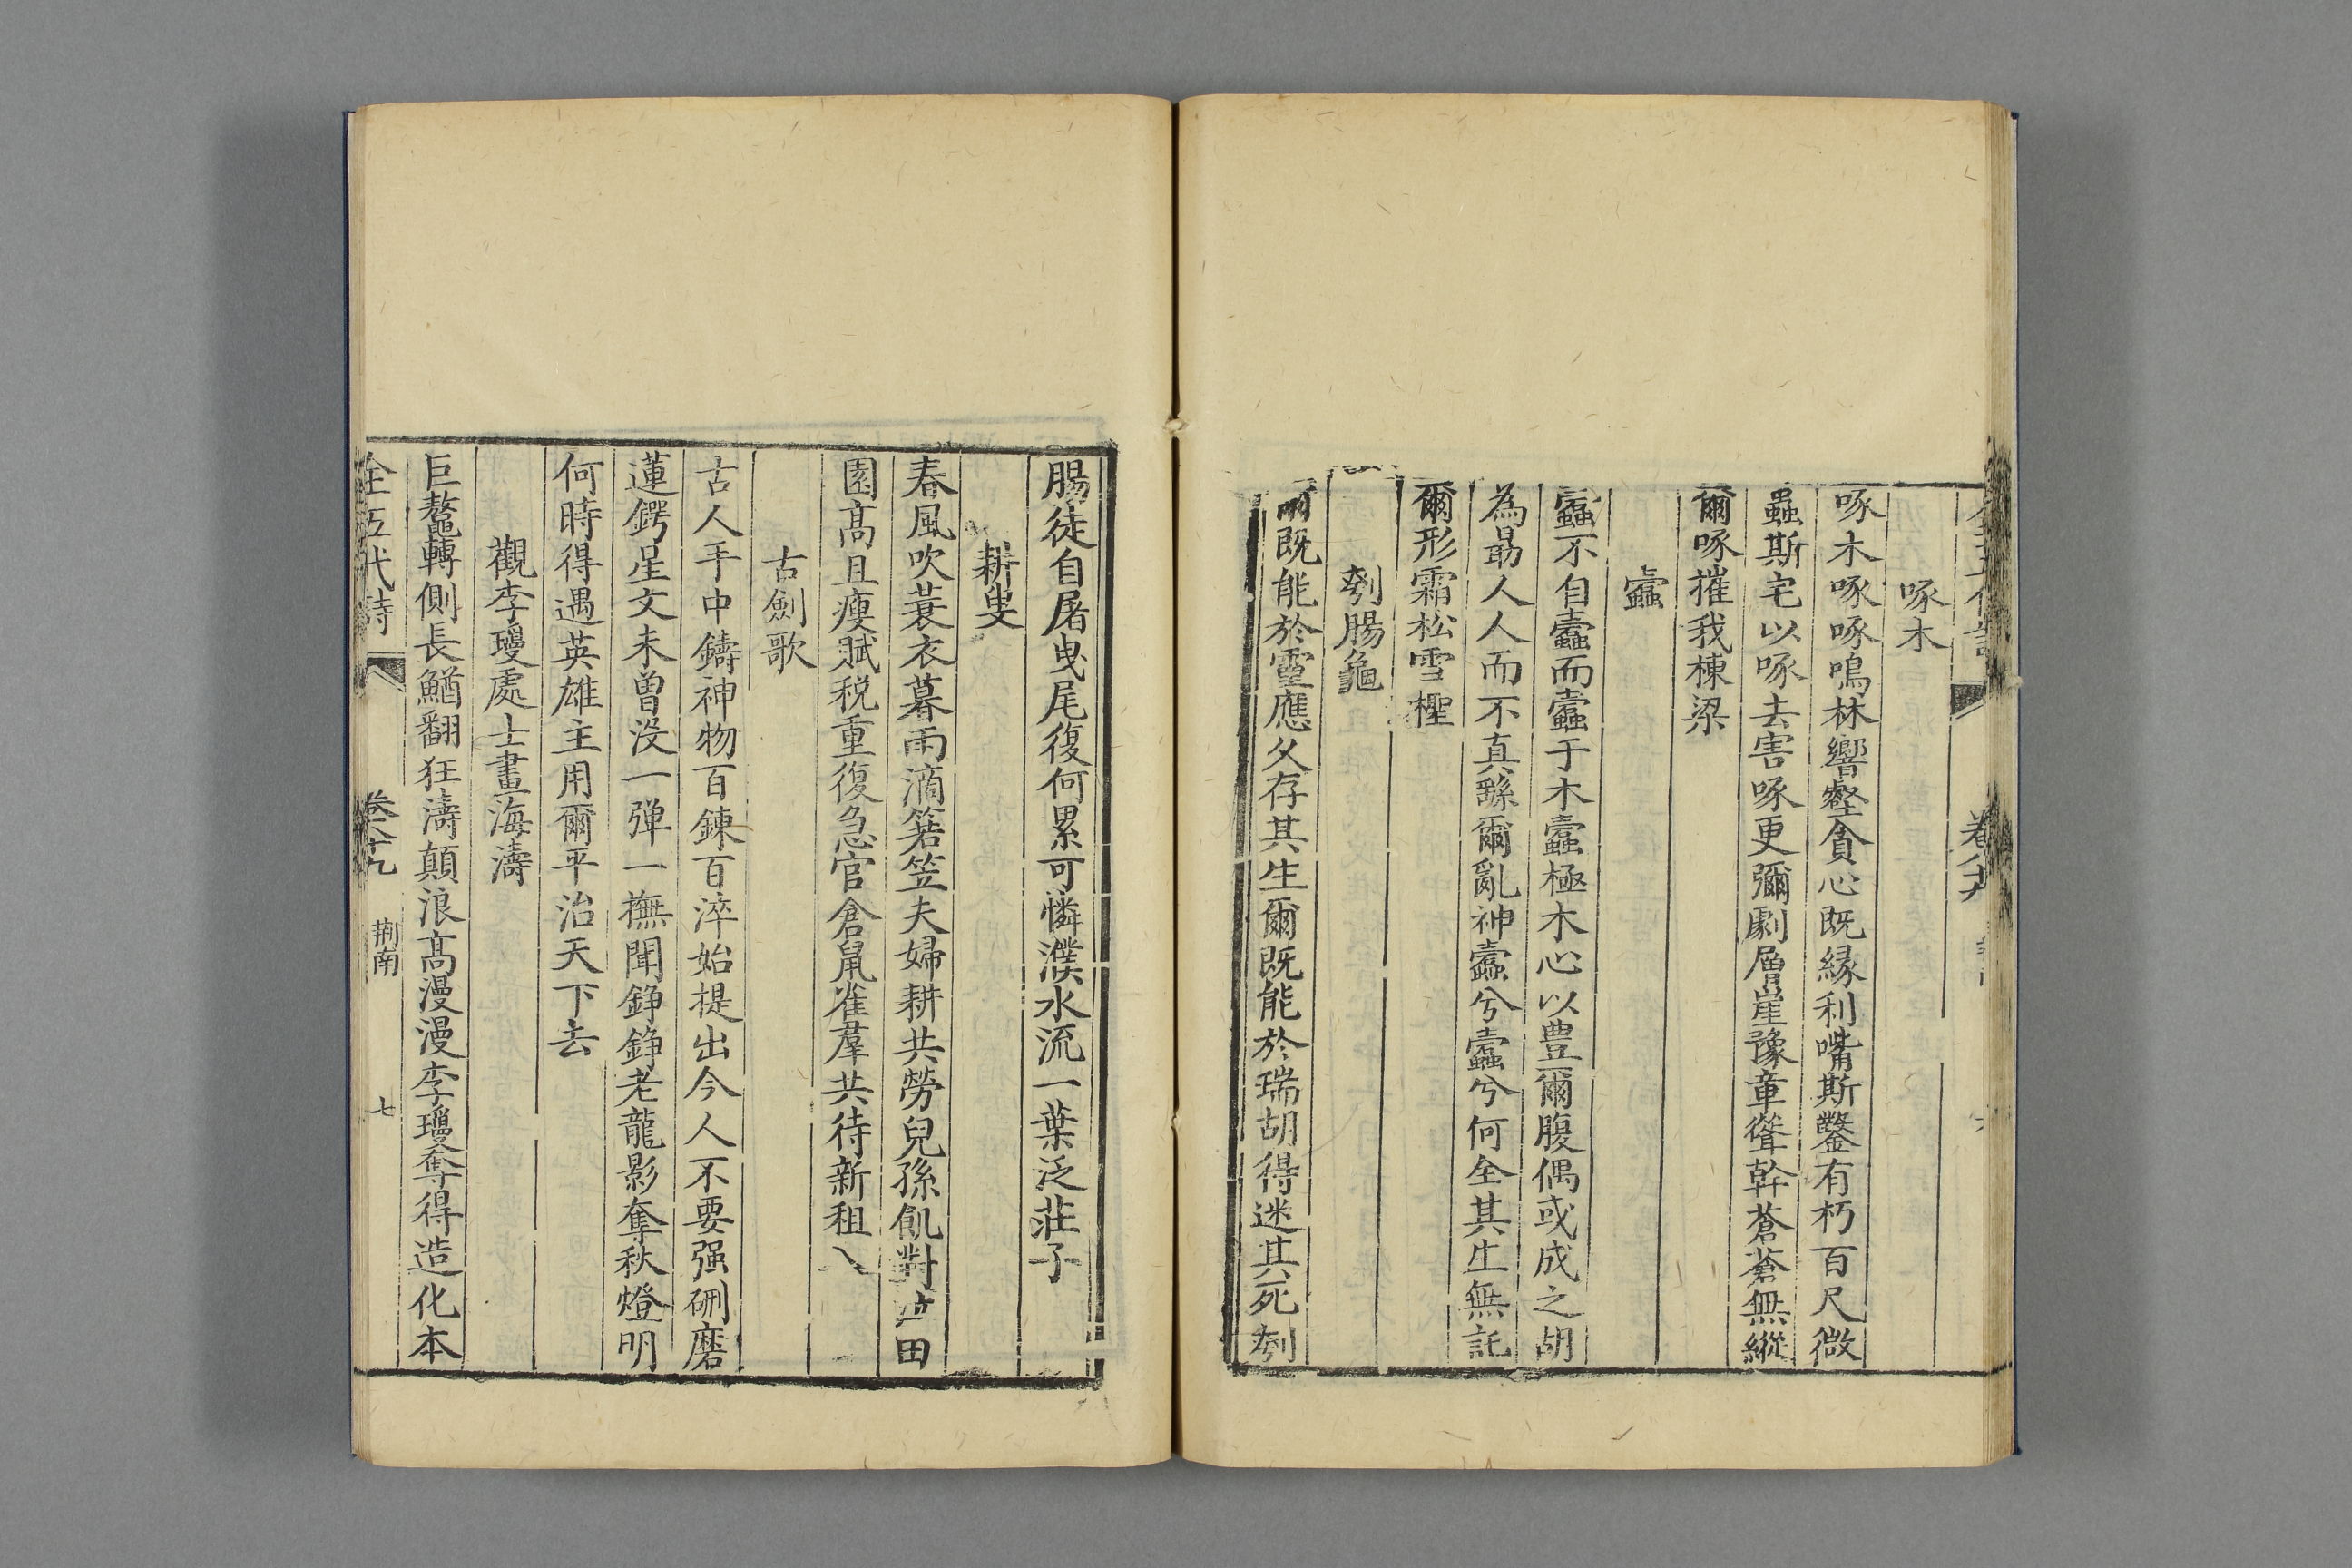 啄木
啄木啄啄鳴林響壑貪心既緣利嘴斯鑿有朽百尺微
蟲斯宅以啄去害啄更彌劇層崖豫章聳幹蒼蒼無縱
爾啄摧我棟梁
蠹
蠹不自蠹而蠹于木蠹極木心以豊爾腹偶或成之胡
為勗人人而不真繇爾亂神蠹兮蠹兮何全其生無託
爾形霜松雪檉
刳腸龜
爾既能於靈應久存其生爾既能於瑞胡得迷其死刳
腸徒自屠曳尾復何累可憐濮水流一葉泛莊子
耕叟
春風吹蓑衣暮雨滴箬笠夫婦耕共勞兒孫飢對泣田
園高且瘦賦稅重復急官倉鼠雀羣共待新租入
古劍歌
古人手中鑄神物百鍊百淬始提出今人不要强硎磨
蓮鍔星文未曾沒一彈一撫聞錚錚老龍影奪秋燈明
何時得遇英雄主用爾平治天下去
觀李瓊處士畫海濤
巨鼇轉側長鰌翻狂濤顛浪高漫漫李瓊奪得造化本
全五代詩 卷八十九 荊南 七